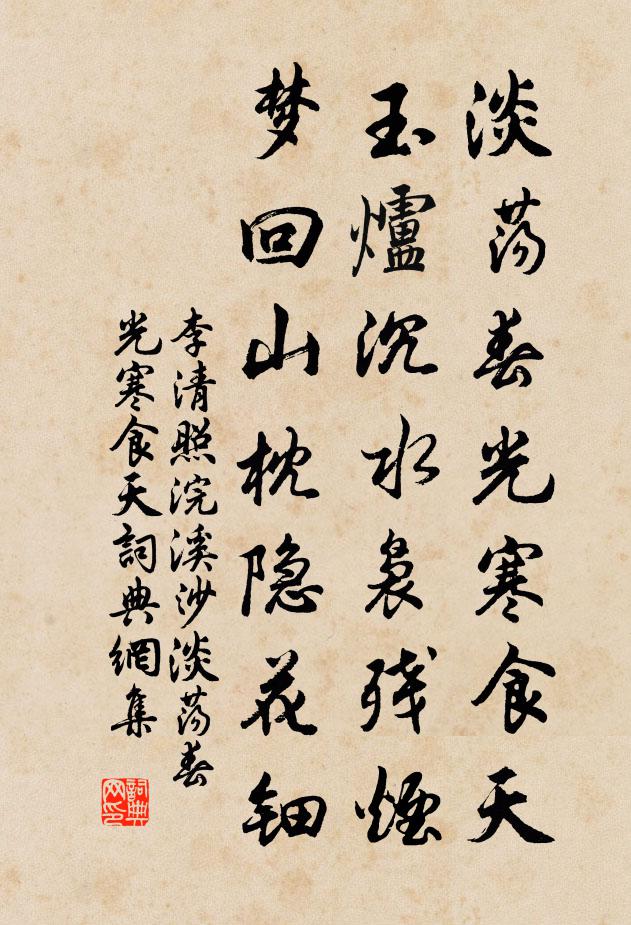 淡荡春光寒食天
玉爐沉水袅残煙
梦回山枕隐花钿
李清照浣溪沙淡荡春
光寒食天詞典網集
詞典
网印